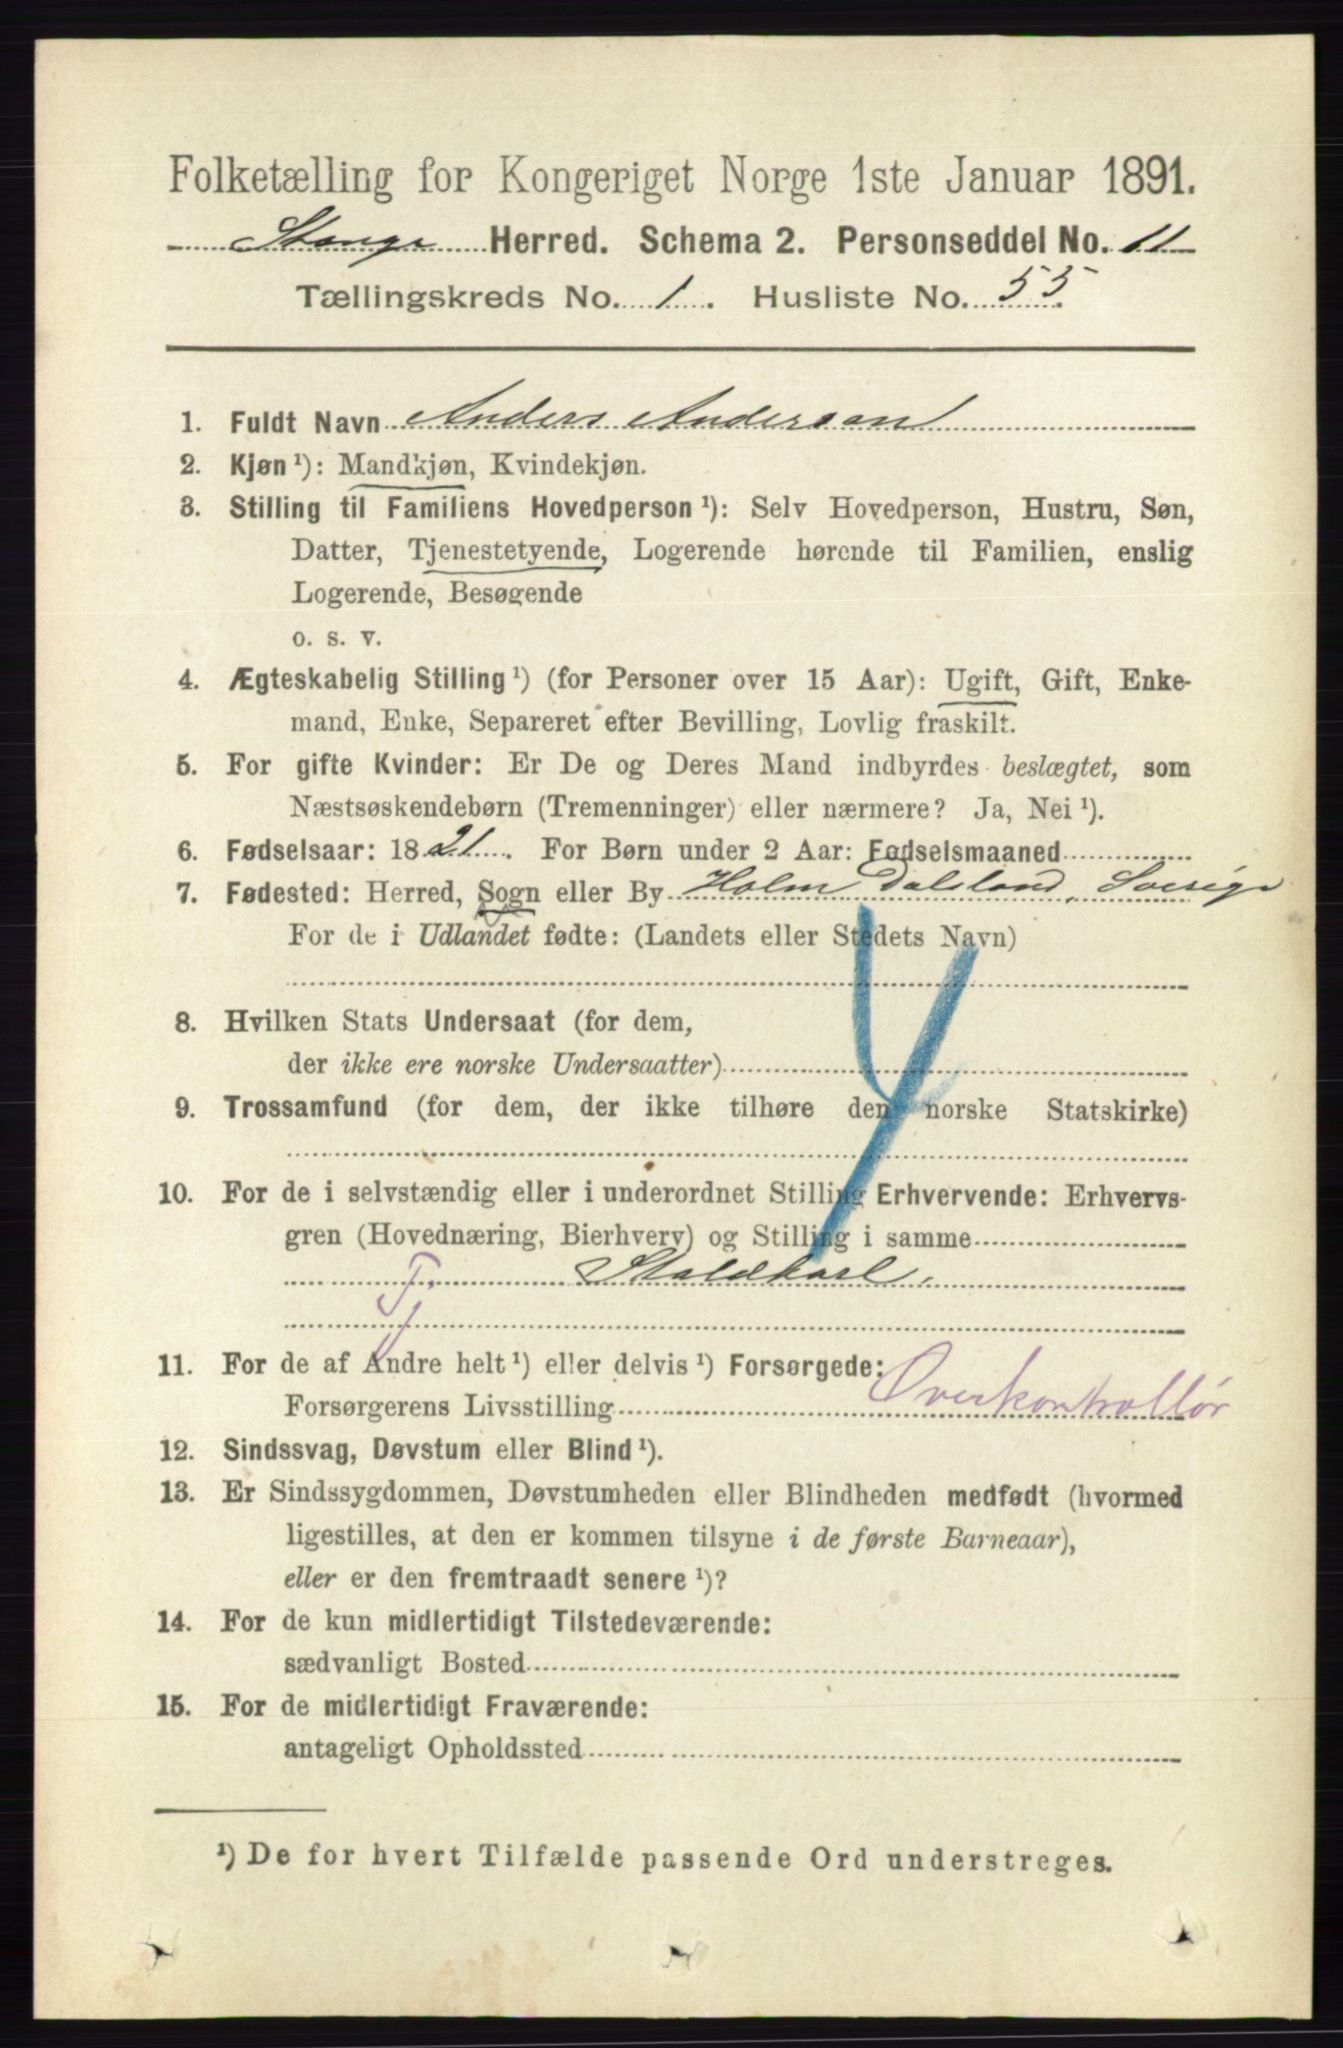 Folketælling for Kongeriget Norge 1ste Januar 1891.
Stange Herred. Schema 2. Personseddel No. 11
Tællingskreds No. 1. Husliste No. 55.
1. Fuldt Navn Anders Anderson
2. Kjøn ¹): Mandkjøn, Kvindekjøn.
3. Stilling til Familiens Hovedperson ¹): Selv Hovedperson, Hustru, Søn,
Datter, Tjenestetyende, Logerende hørende til Familien, enslig
Logerende, Besøgende
o. s. v.
4. Ægteskabelig Stilling ¹) (for Personer over 15 Aar): Ugift, Gift, Enke-
mand, Enke, Separeret efter Bevilling, Lovlig fraskilt.
5. For gifte Kvinder: Er De og Deres Mand indbyrdes beslægtet, som
Næstsøskendebørn (Tremenninger) eller nærmere? Ja, Nei ¹).
6. Fødselsaar: 1821. For Børn under 2 Aar: Fødselsmaaned
7. Fødested: Herred, Sogn eller By Holm Dalsland, Sverige
For de i Udlandet fødte: (Landets eller Stedets Navn)
8. Hvilken Stats Undersaat (for dem,
der ikke ere norske Undersaatter)
9. Trossamfund (for dem, der ikke tilhøre den norske Statskirke)
10. For de i selvstændig eller i underordnet Stilling Erhvervende: Erhvervs-
gren (Hovednæring, Bierhverv) og Stilling i samme
Tj. Staldkarl.
11. For de af Andre helt ¹) eller delvis ¹) Forsørgede:
Forsørgerens Livsstilling Overkontrollør
12. Sindssvag, Døvstum eller Blind ¹).
13. Er Sindssygdommen, Døvstumheden eller Blindheden medfødt (hvormed
ligestilles, at den er kommen tilsyne i de første Barneaar),
eller er den fremtraadt senere ¹)?
14. For de kun midlertidigt Tilstedeværende:
sædvanligt Bosted
15. For de midlertidigt Fraværende:
antageligt Opholdssted
¹) De for hvert Tilfælde passende Ord understreges.